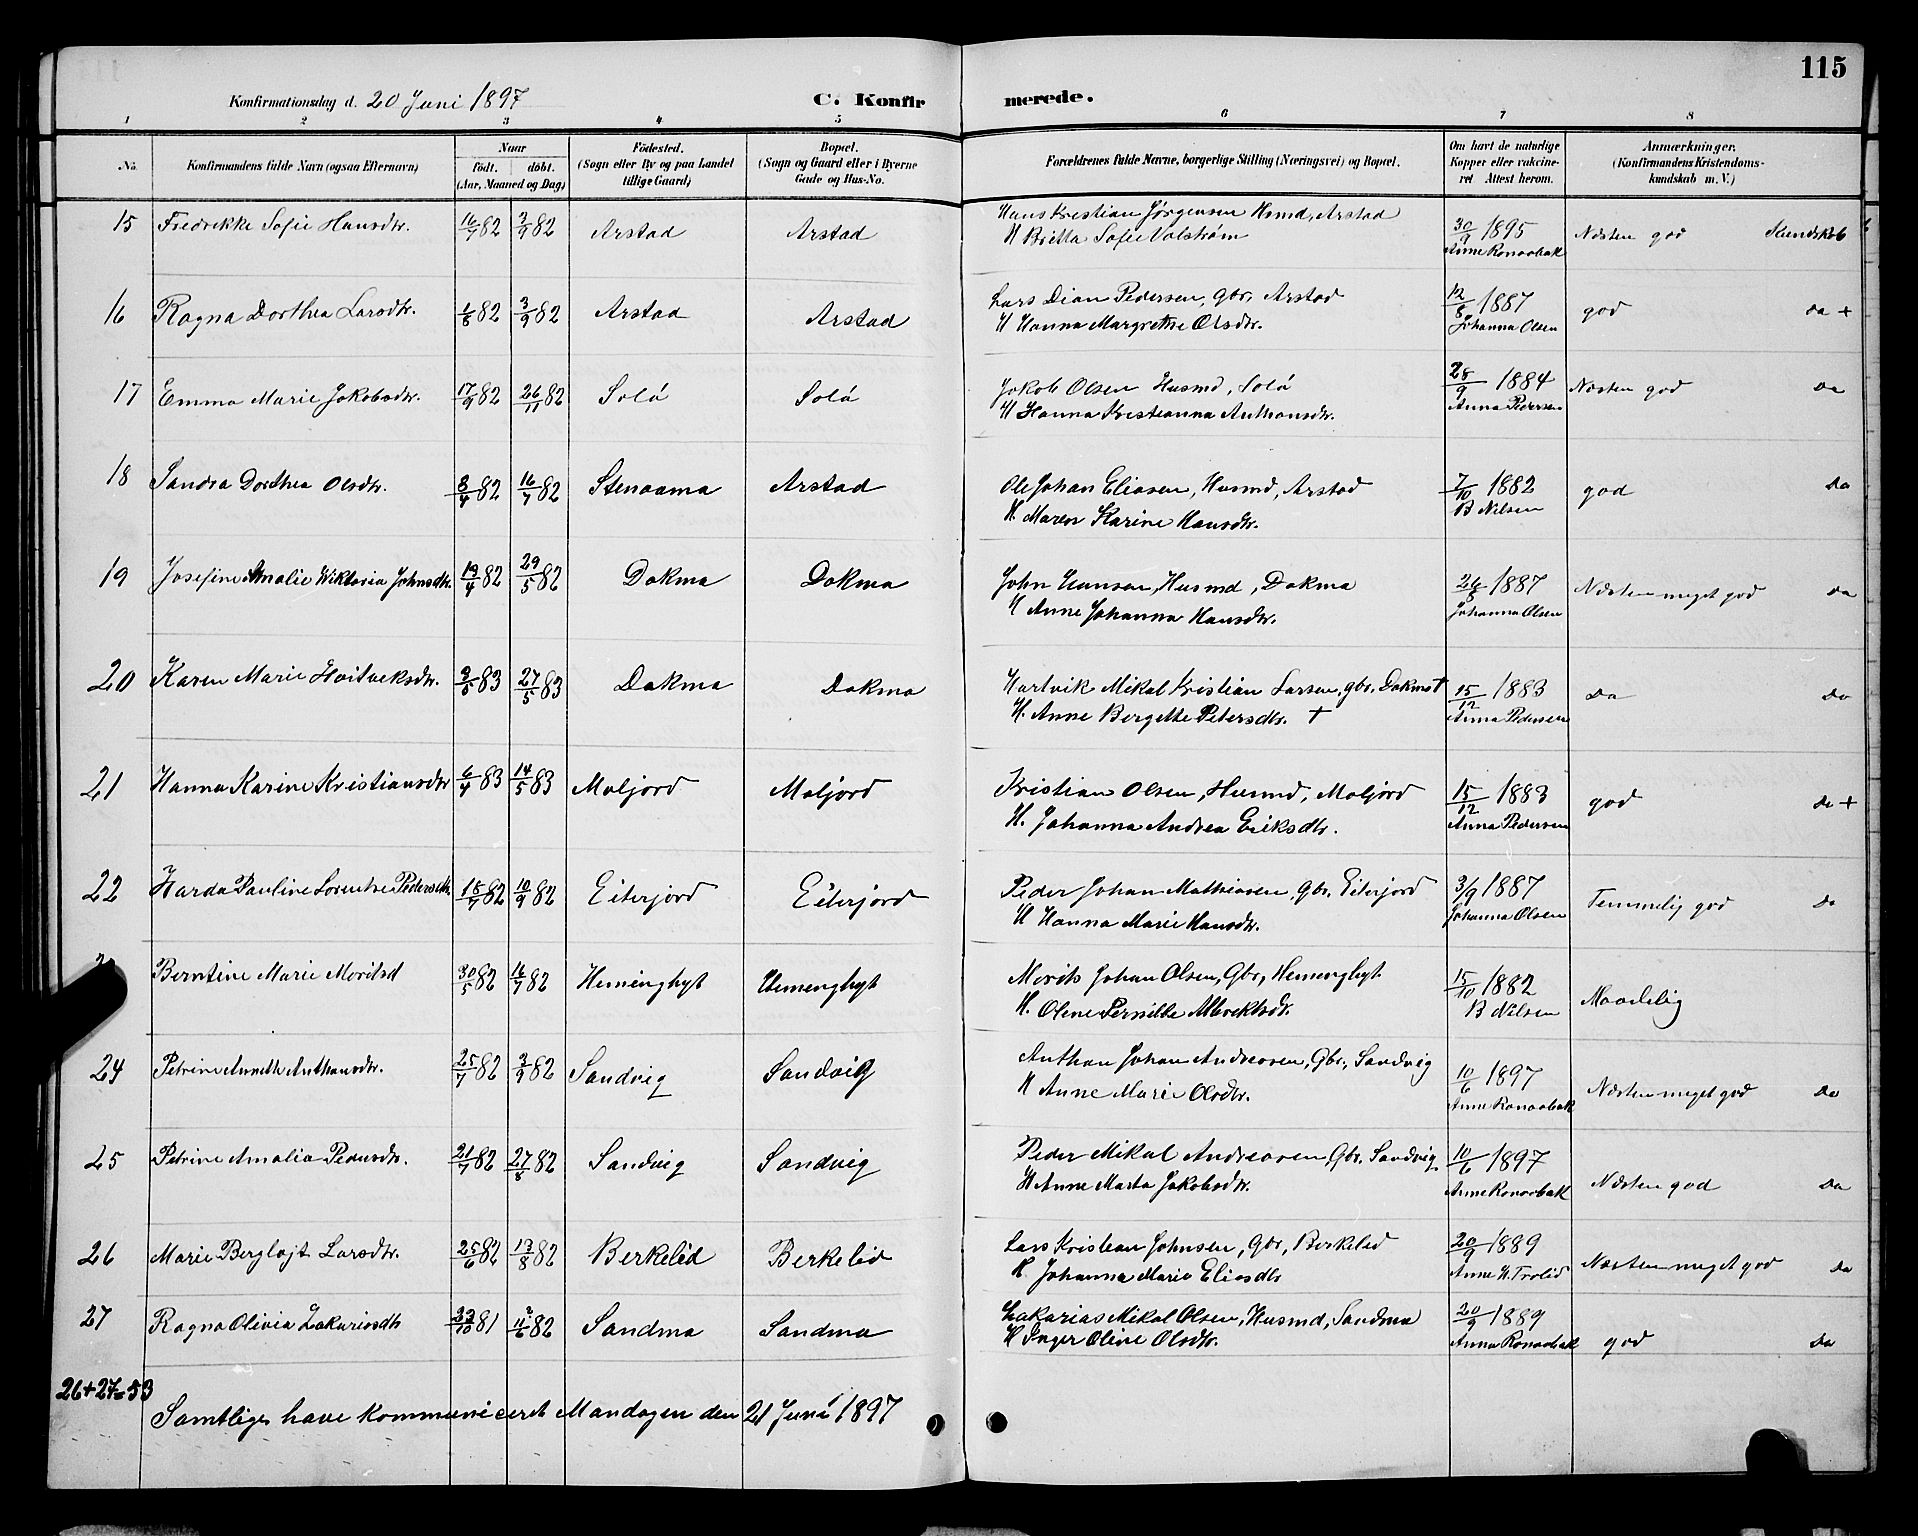 115
Konfirmationsdag d. 20 Juni 1897 C. Konfirmerede.
1 2 3 4 5 6 7 8
No. Konfirmandens fulde Navn (ogsaa Efternavn) Naar født. døbt. (Aar, Maaned og Dag) Fødested. (Sogn eller By og paa Landet tillige Gaard) Bopæl. (Sogn og Gaard eller i Byerne Gade og Hus-No. Forældrenes fulde Navne, borgerlige Stilling (Næringsvei) og Bopæl. Om havt de naturlige Kopper eller vakcineret Attest herom. Anmærkninger. (Konfirmandens Kristendomskundskab m. V.)
15 Fredrikke Sofie Hansdtr. 16/7 82 3/9 82 Arstad Arstad Hans Kristian Jørgensen Hsmd, Arstad 30/9 1895 Næsten god Kundskab
H Britta Sofie Valstrøm Anne Ronaabak
16 Ragna Dorthea Larsdtr. 1/8 82 3/9 82 Arstad Arstad Lars Dian Pedersen, gbr. Arstad 12/8 1887 god Do +
H Hanna Margrethe Olsdtr. Johanna Olsen
17 Emma Marie Jakobsdtr. 17/9 82 26/11 82 Solø Solø Jakob Olsen Husmd, Solø 28/9 1884 Næsten god Do
H Hanna Kristianna Anthonsdtr. Anna Pedersen
18 Sandra Dorthea Olsdtr. 8/4 82 16/7 82 Stenaama Arstad Ole Johan Eliasen, Husmd, Arstad 7/10 1882 god Do
H. Maren Karine Hansdtr. B Nilsen
19 Josefine Amalie Wiktoria Johnsdtr. 19/4 82 29/5 82 Dokma Dokma John Hansen, Husmd, Dokma 26/8 1887 Næsten meget god Do
H Anne Johanna Hansdtr. Johanna Olsen
20 Karen Marie Hartviksdtr. 3/5 83 27/5 83 Dokma Dokma Hartvik Mikal Kristian Larsen, gbr. Dokma † 15/12 1883 Do Do
H. Anne Bergette Petersdtr. † Anna Pedersen
21 Hanna Karine Kristiansdtr 6/4 83 14/5 83 Moljord Moljord Kristian Olsen, Husmd, Moljord 15/12 1883 god Do +
H. Johanna Andrea Eriksdtr. Anna Pedersen
22 Harda Pauline Lorentse Pedersdtr. 18/7 82 10/9 82 Eiterjord Eiterjord Peder Johan Mathiasen, Gbr. Eiterjord 3/9 1887 Temmelig god Do
H Hanna Marie Hansdtr. Johanna Olsen
Berntine Marie Moritsd 30/5 82 16/7 82 Heminghyt Hemenghyt Morits Johan Olsen, Gbr, Hemenghyt 15/10 1882 Maadelig
H. Olene Pernille Albrektsdtr. B Nilsen
24 Petrine Annette Anthonsdtr. 25/7 82 3/9 82 Sandvig Sandvig Anthon Johan Andreasen, Gbr, Sandvig 10/6 1897 Næsten meget god Do
H Anne Marie Olsdtr. Anne Ronaabak
25 Petrine Amalia Pedersdtr. 21/7 82 27/8 82 Sandvig Sandvig Peder Mikal Andreasen, Gbr. Sandvig 10/6 1897 Næsten god Do
H Anne Marta Jakobsdtr. Anne Ronaabak
26 Marie Bergløjt Larsdtr. 25/6 82 13/8 82 Berkelid Berkelid Lars Kristian Johnsen, Gbr, Berkelid 20/9 1889 Næsten meget god Do
H. Johanna Marie Eliasdtr Anne H. Trolid
27 Ragna Olivia Zakariasdtr 81 82 Sandmo Sandmo Zakarias Mikal Olsen, Husmd, Sandmo 20/9 1889 god Do
H Inger Oline Olsdtr. Anna Ronaabak
26+27=53
Samtlige have kommuniceret Mandagen den 21 Juni 1897